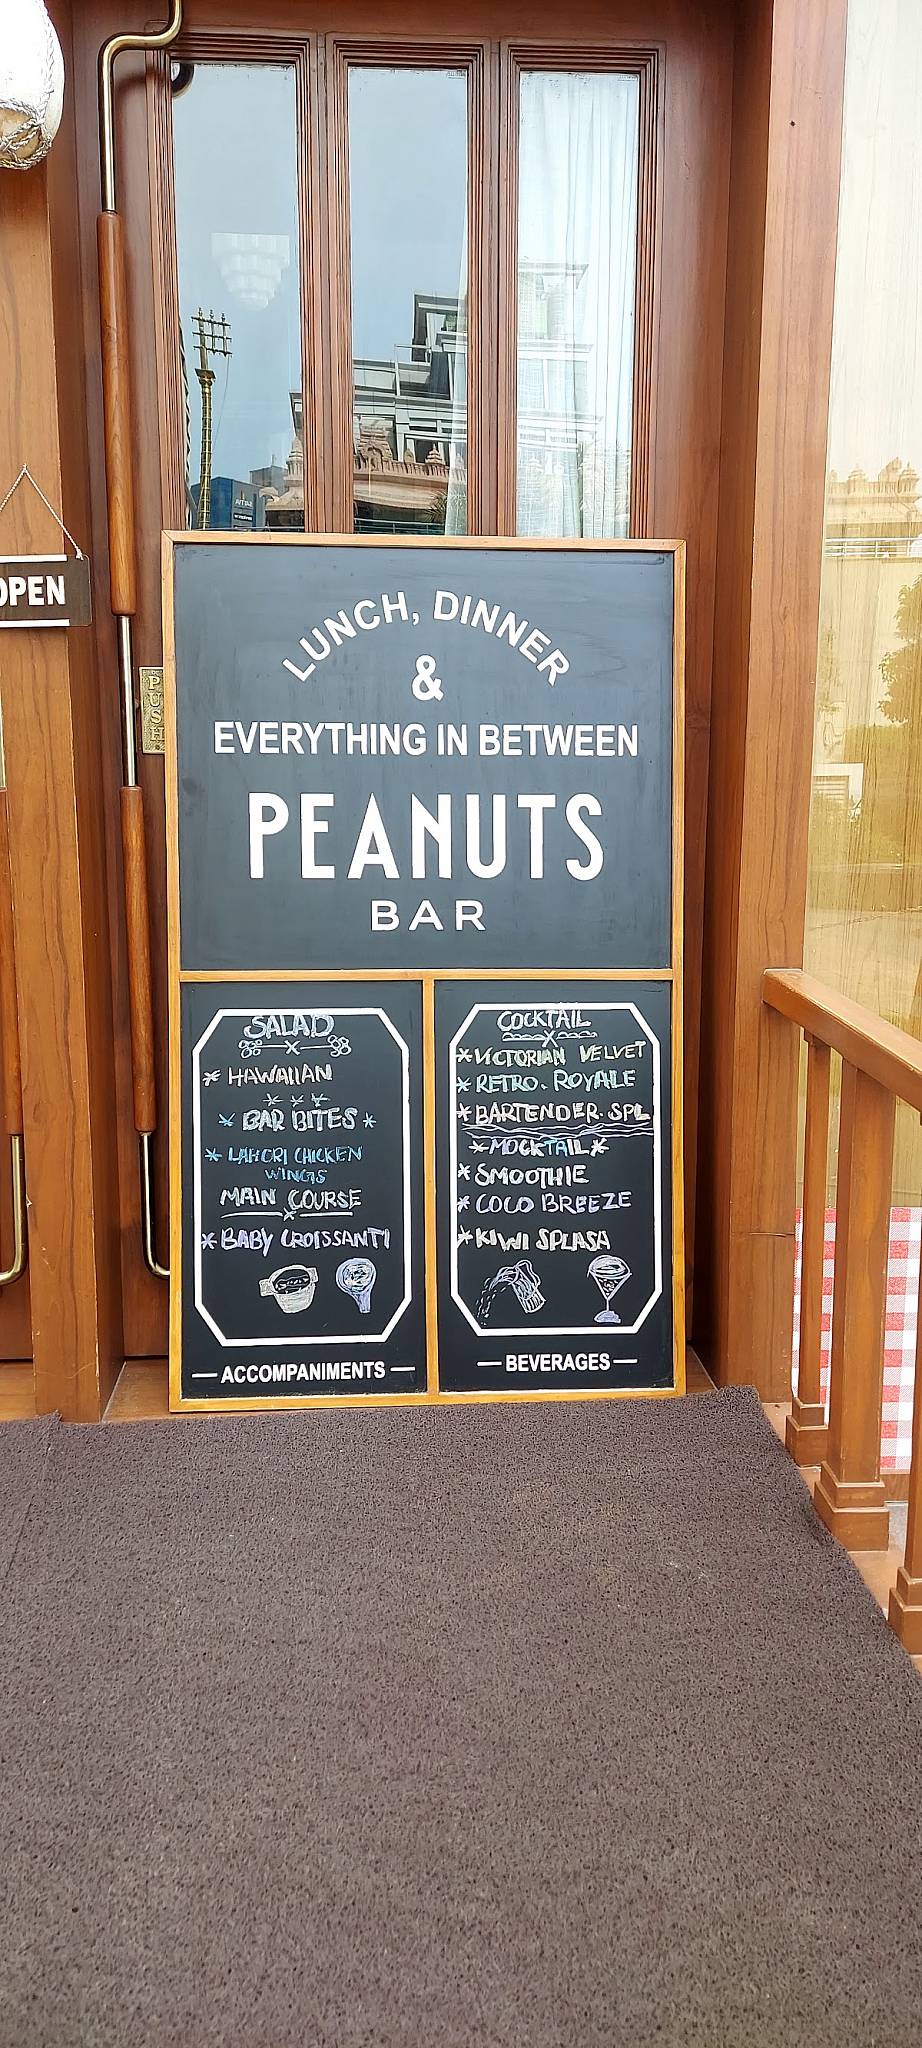 OPEN
PUSH
LUNCH, DINNER
&
EVERYTHING IN BETWEEN
PEANUTS
BAR
SALAD
* HAWAIIAN
* BAR BITES *
* LAHORI CHICKEN
WINGS
MAIN COURSE
* BABY CROISSANTI
— ACCOMPANIMENTS —
COCKTAIL
* VICTORIAN VELVET
* RETRO. ROYALE
* BARTENDER. SPL
* MOCKTAIL *
* SMOOTHIE
* COCO BREEZE
* KIWI SPLASA
— BEVERAGES —